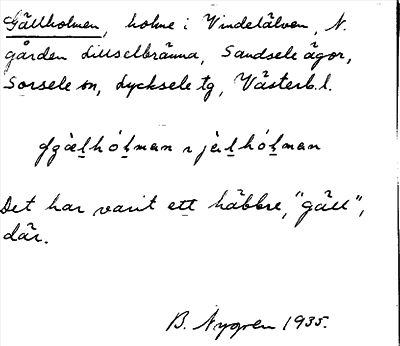 Gällholmen, holme i Vindelälven, N.
gården Lillselbränna, Sandsele ägor,
Sorsele sn, Lycksele tg, Västerb. l.
jè̱lhó̱lman
Det har varit ett häbbre, "gäll",
där.
B. Nygren 1935.